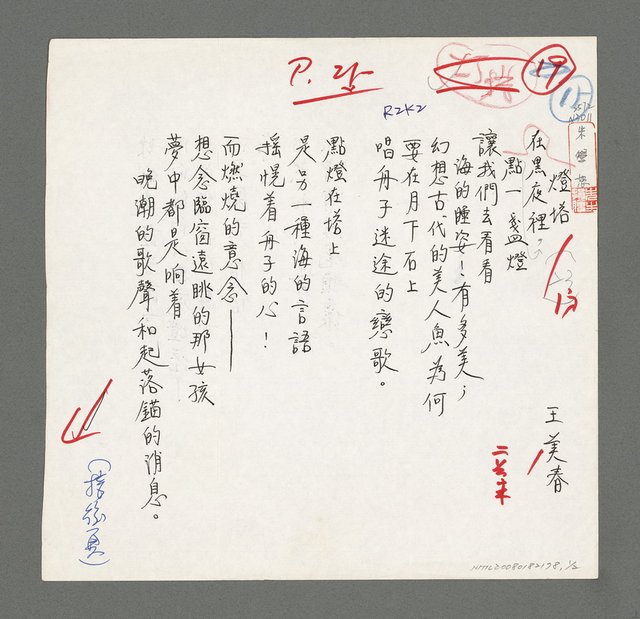 燈塔
王美春
在黑夜裡
點一盞燈
讓我們去看看
海的睡姿!有多美;
幻想古代的美人魚為何
要在月下石上
唱舟子迷途的戀歌。
點燈在塔上
是另一種海的言語
搖幌着舟子的心!
而燃燒的意念——
想念臨窗遠眺的那女孩
夢中都是响着
晚潮的歌聲和起落錨的消息。
(接後頁)
R2K2
19
NMTL20080182178, 1/2